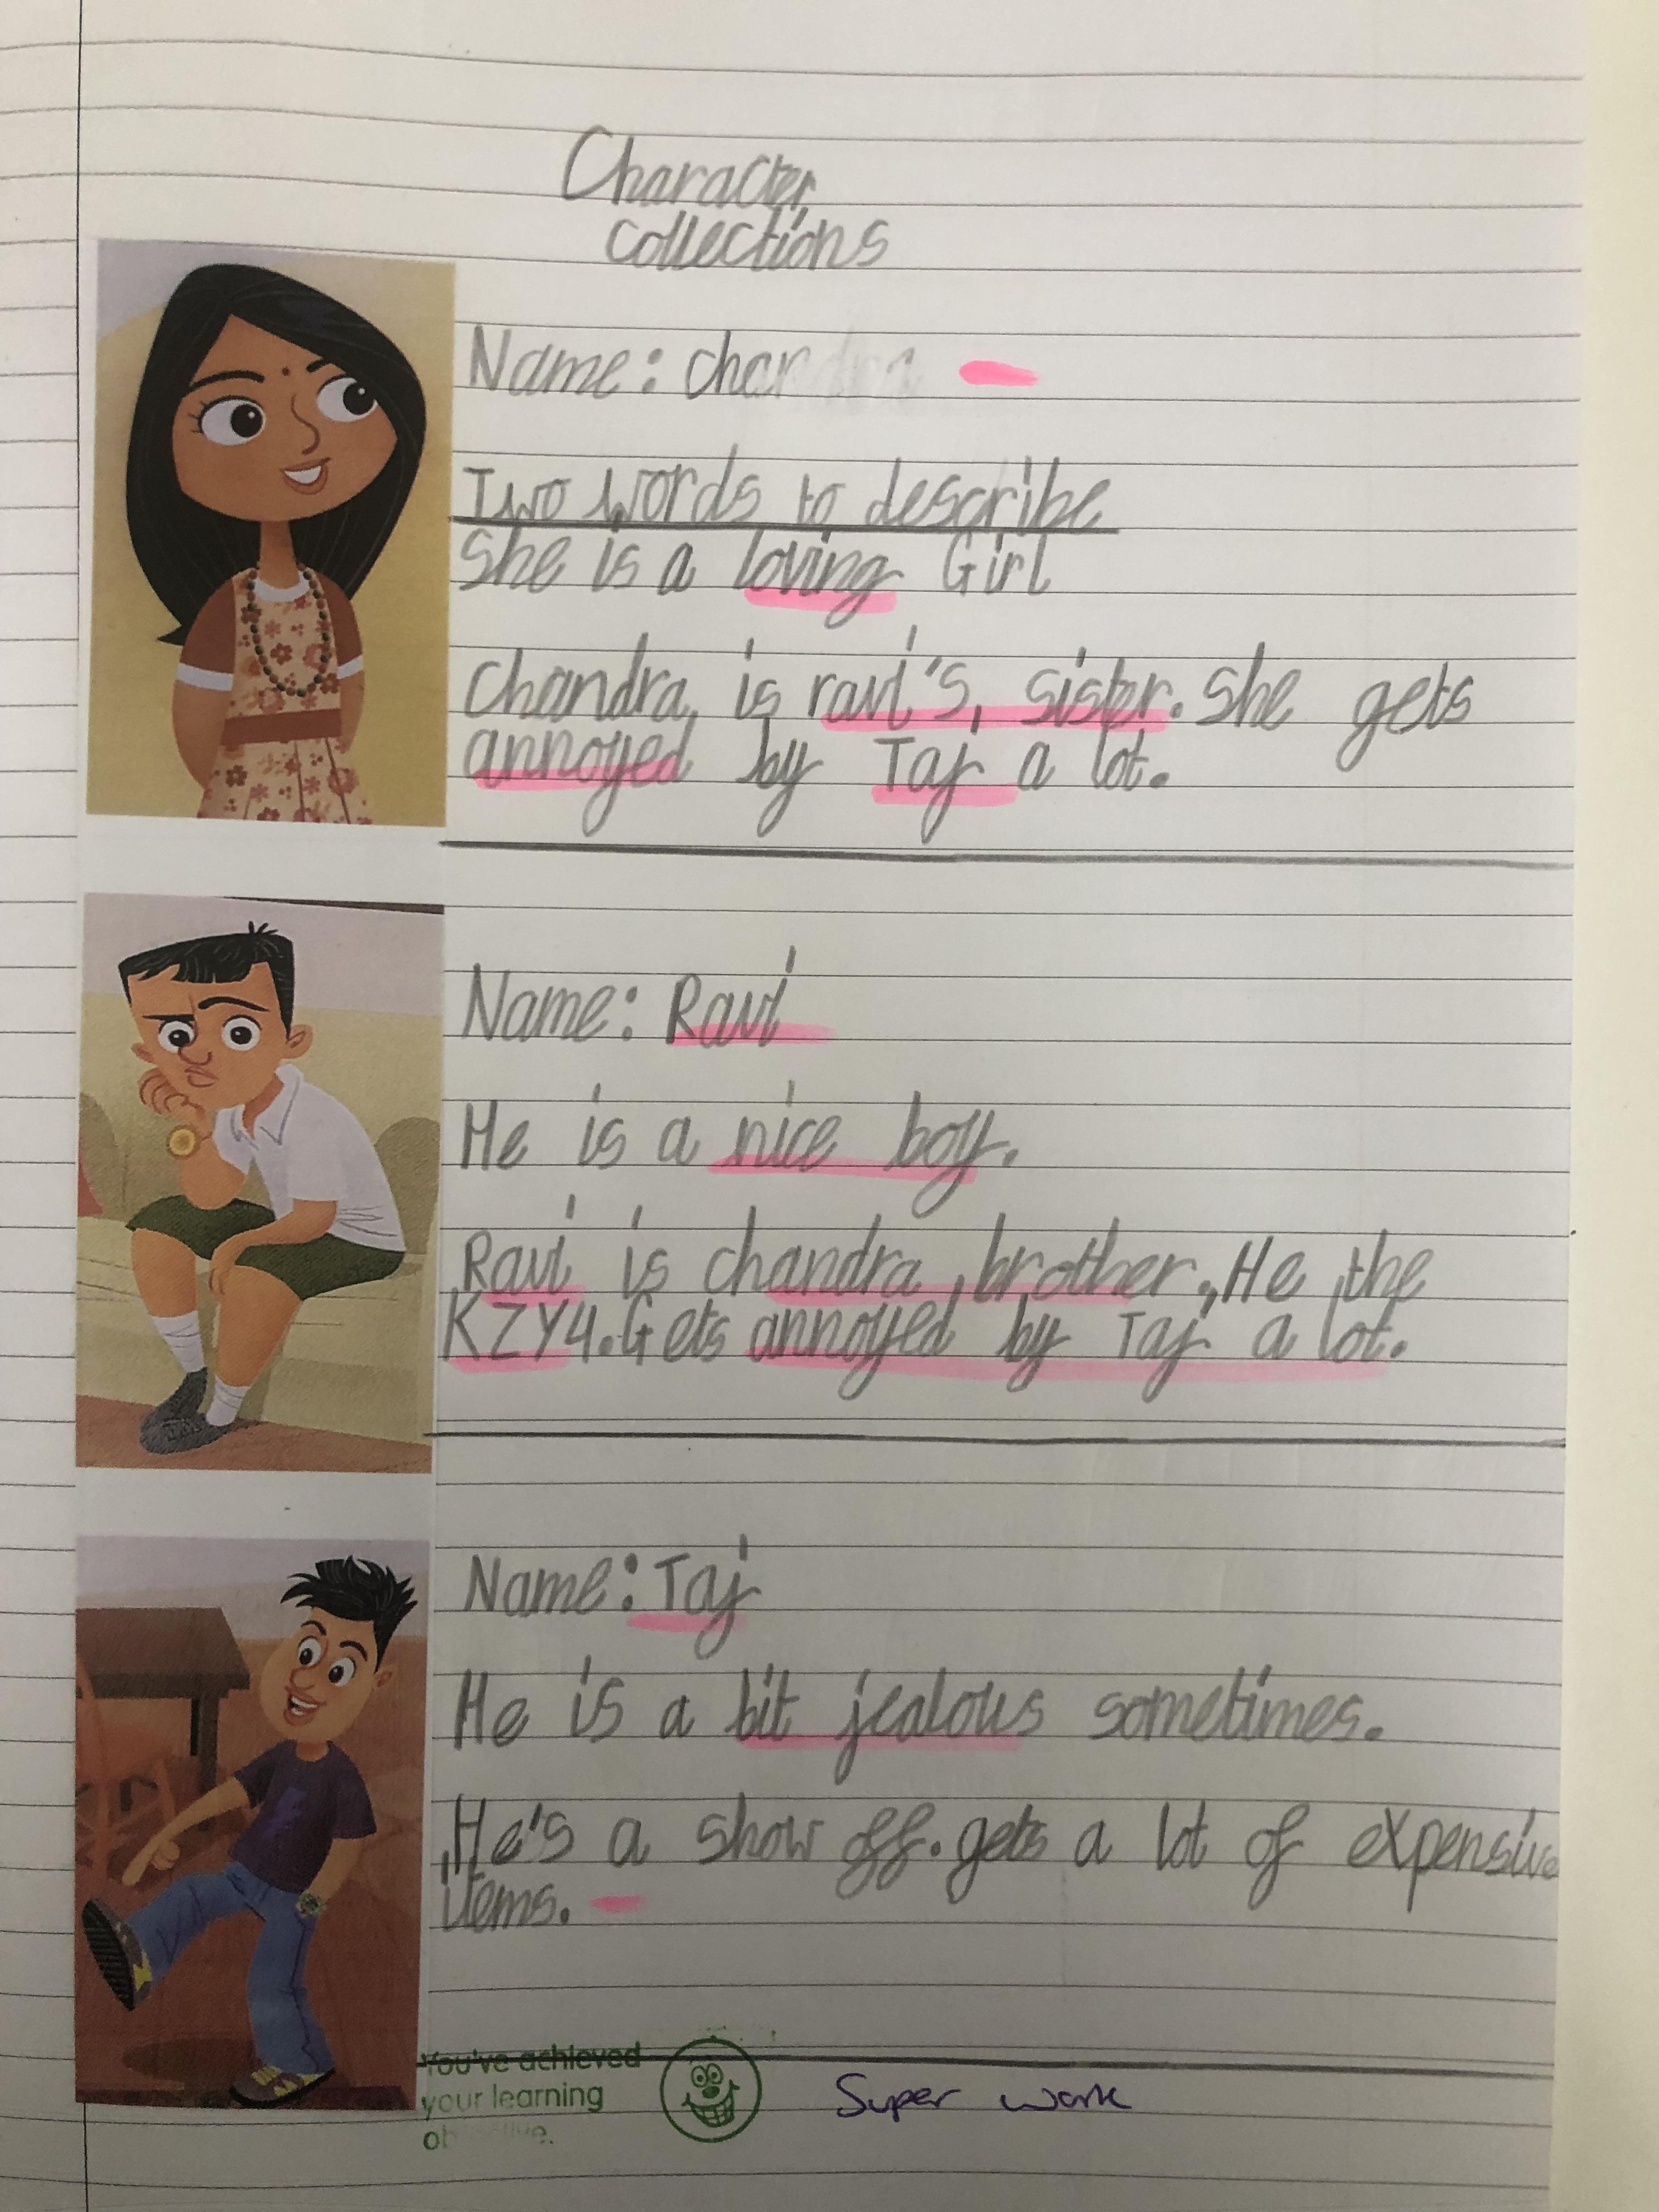 Character
collections
Name: chandra
Two words to describe
She is a loving Girl
Chandra, is ravi's, sister. She gets
annoyed by Taj a lot.
Name: Ravi
He is a nice boy.
Ravi is chandra, brother, He, the
KZY4. Gets annoyed by Taj a lot.
Name: Taj
He is a bit jealous sometimes.
He's a show off. gets a lot of expensive
items.
You've achieved
your learning
objective.
Super work